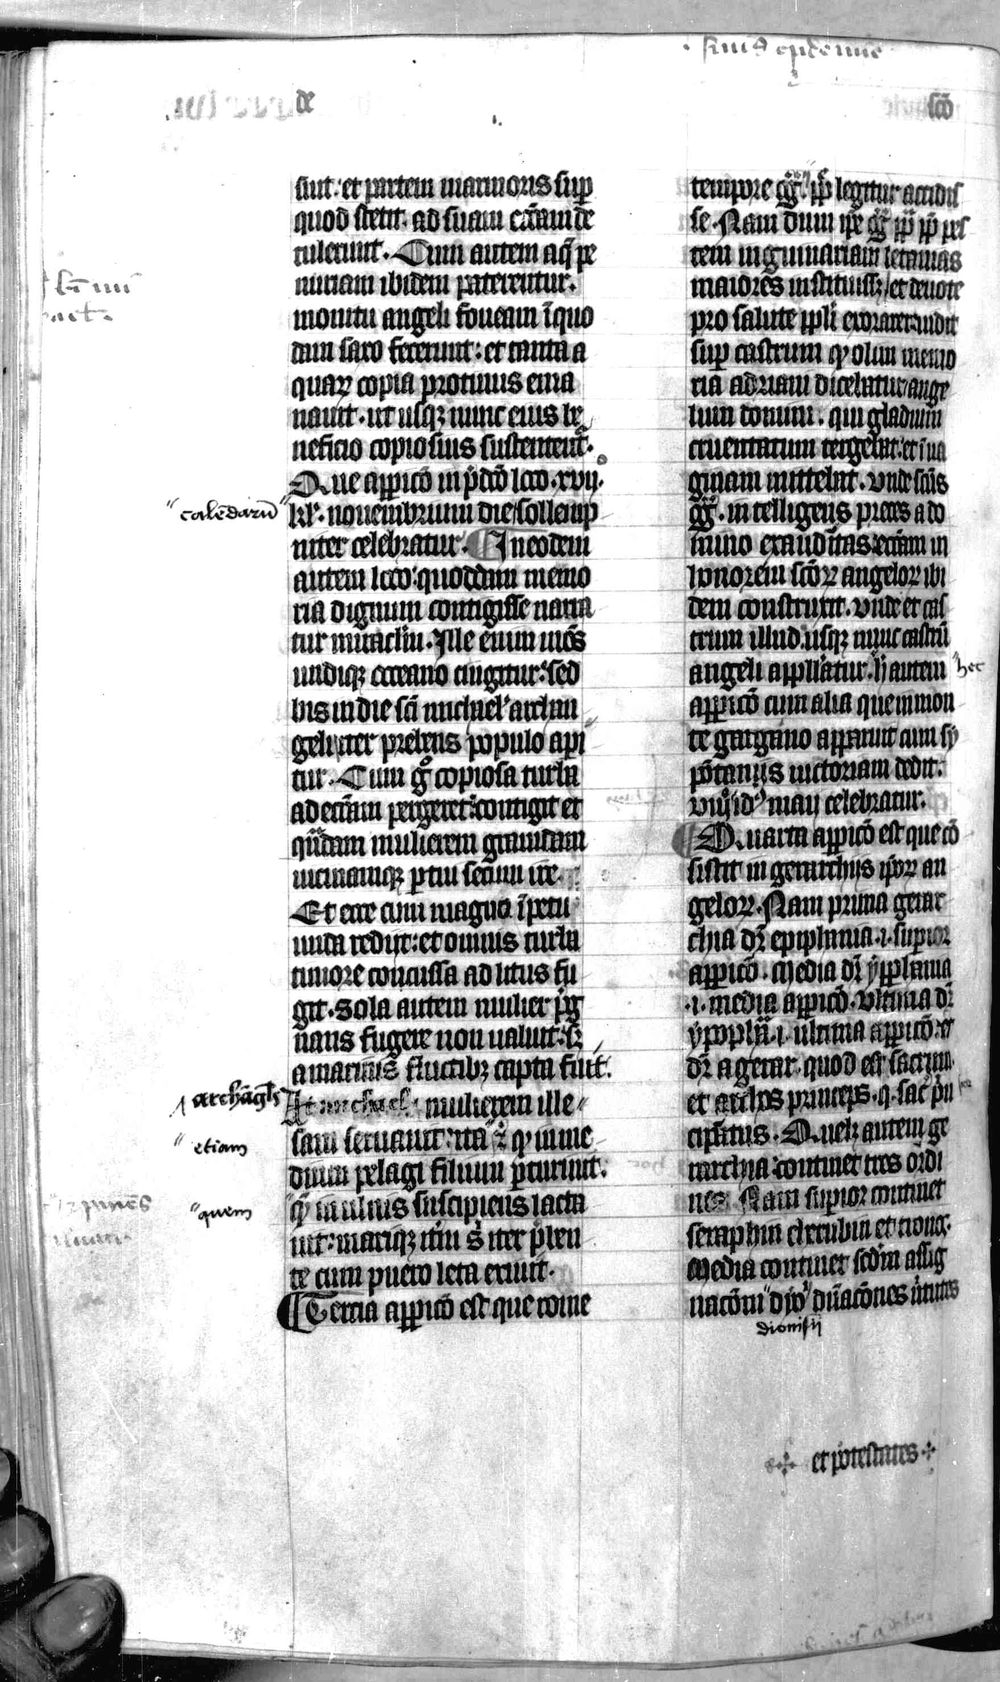 de
sco̅
sunt. et partem marmoris sup̲
quod stetit. ad suam ecc̅am de
tulerunt. Cum autem aq̅ pe
nuriam ibidem paterentur.
monitu angeli foueam i̅ quo
dam saxo fecerunt: et tanta a
quaꝝ copia protinus ema
nauit. ut usqꝫ nunc eius be
neficio copiosius sustentent᷑.
Que appic̅o in p̅dc̅o loco. xvij.
"calendaru̅
kl'. nouembrium die sollemp
niter celebratur. In eodem
autem loco. quoddam memo
ria dignum contigisse narra
tur miraclm̅. Ille enim mo̅s
undiqꝫ occeano cingitur. sed
bis in die sc̅i michael' archan
geli, iter prebens populo api
tur. Cum g̊ copiosa turba
ad ecc̅am pergeret. contigit et
qua̅dam mulierem grauidam
uicinamqꝫ partui secum ire.
Et ecce cum magno i̅petu
unda redijt: et omnis turba
timore concussa ad litus fu
git. Sola autem mulier p̅g
nans fugere non ualuit. sꝫ
a marinis fluctibꝫ capta fuit.
archa̅gl's
At michael mulierem ille"
"etiam
sam seruauit: ita q̲ in me
dium pelagi filium p̲turiuit.
"quem
que̅ in ulnis suscipiens lacta
uit: mariqꝫ it̅m s' iter p̅ben
te cum puero leta exiuit.
Tercia appic̅o est que rome
tempore gg̅. pp̅ legitur accidis
se. Nam dum ip̅e gg̅ pp̅ pes
tem inguinariam letanias
maiores instituissꝫ, et deuote
pro salute pp̅li exoraret. uidit
sup̲ castrum q̲ olim memo
ria adriani dicebatur, ange
lum domini. qui gladium
cruentatum tergebat. et i̅ ua
ginam mittebat. Vnde sc̅us
gg̅. intelligens preces a do
mino exauditas. ecc̅am in
honorem sco̅ꝝ angeloꝝ ibi
dem construxit. vnde et cas
trum illud. usqꝫ nunc castru̅
angeli appllatur. h̅ autem "hec
appic̅o cum alia que in mon
te gargano apparuit cum sy
po̅tanijs uictoriam dedit.
viij id' maij celebratur.
Quarta appic̅o est que co̅
sistit in gerarchijs ip̅oꝝ an
geloꝝ. Nam prima gerar
chia dr̅ epiphania. i. sup̲ior
appic̅o. Media dr̅ yp̲phania
.i. media appic̅o. Vltima dr̅
ypophn̅a. i. ultima appic̅o. et
dr̅ a gerar. quod est sacrum.
et archos princeps. q. sac̅ p̅n
cipatus. Quelꝫ autem ge
rarchia continet tres ordi
nes. Nam sup̲ior continet
seraphin cherubin et tronos.
Media continet sedm̅ assig
nac̅om "dyo" dn̅ac̅ones u̅tutes
dionisij
et potestates